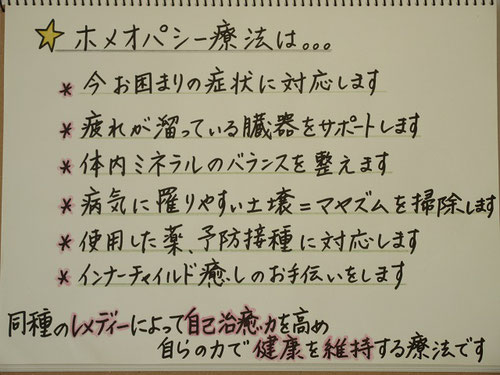 ☆ホメオパシー療法は。。。
* 今お困まりの症状に対応します
* 疲れが溜っている臓器をサポートします
* 体内ミネラルのバランスを整えます
* 病気に罹りやすい土壌=マヤズムを掃除します
* 使用した薬、予防接種に対応します
* インナーチャイルド癒しのお手伝いをします
同種のレメディーによって自己治癒力を高め
自らの力で健康を維持する療法です